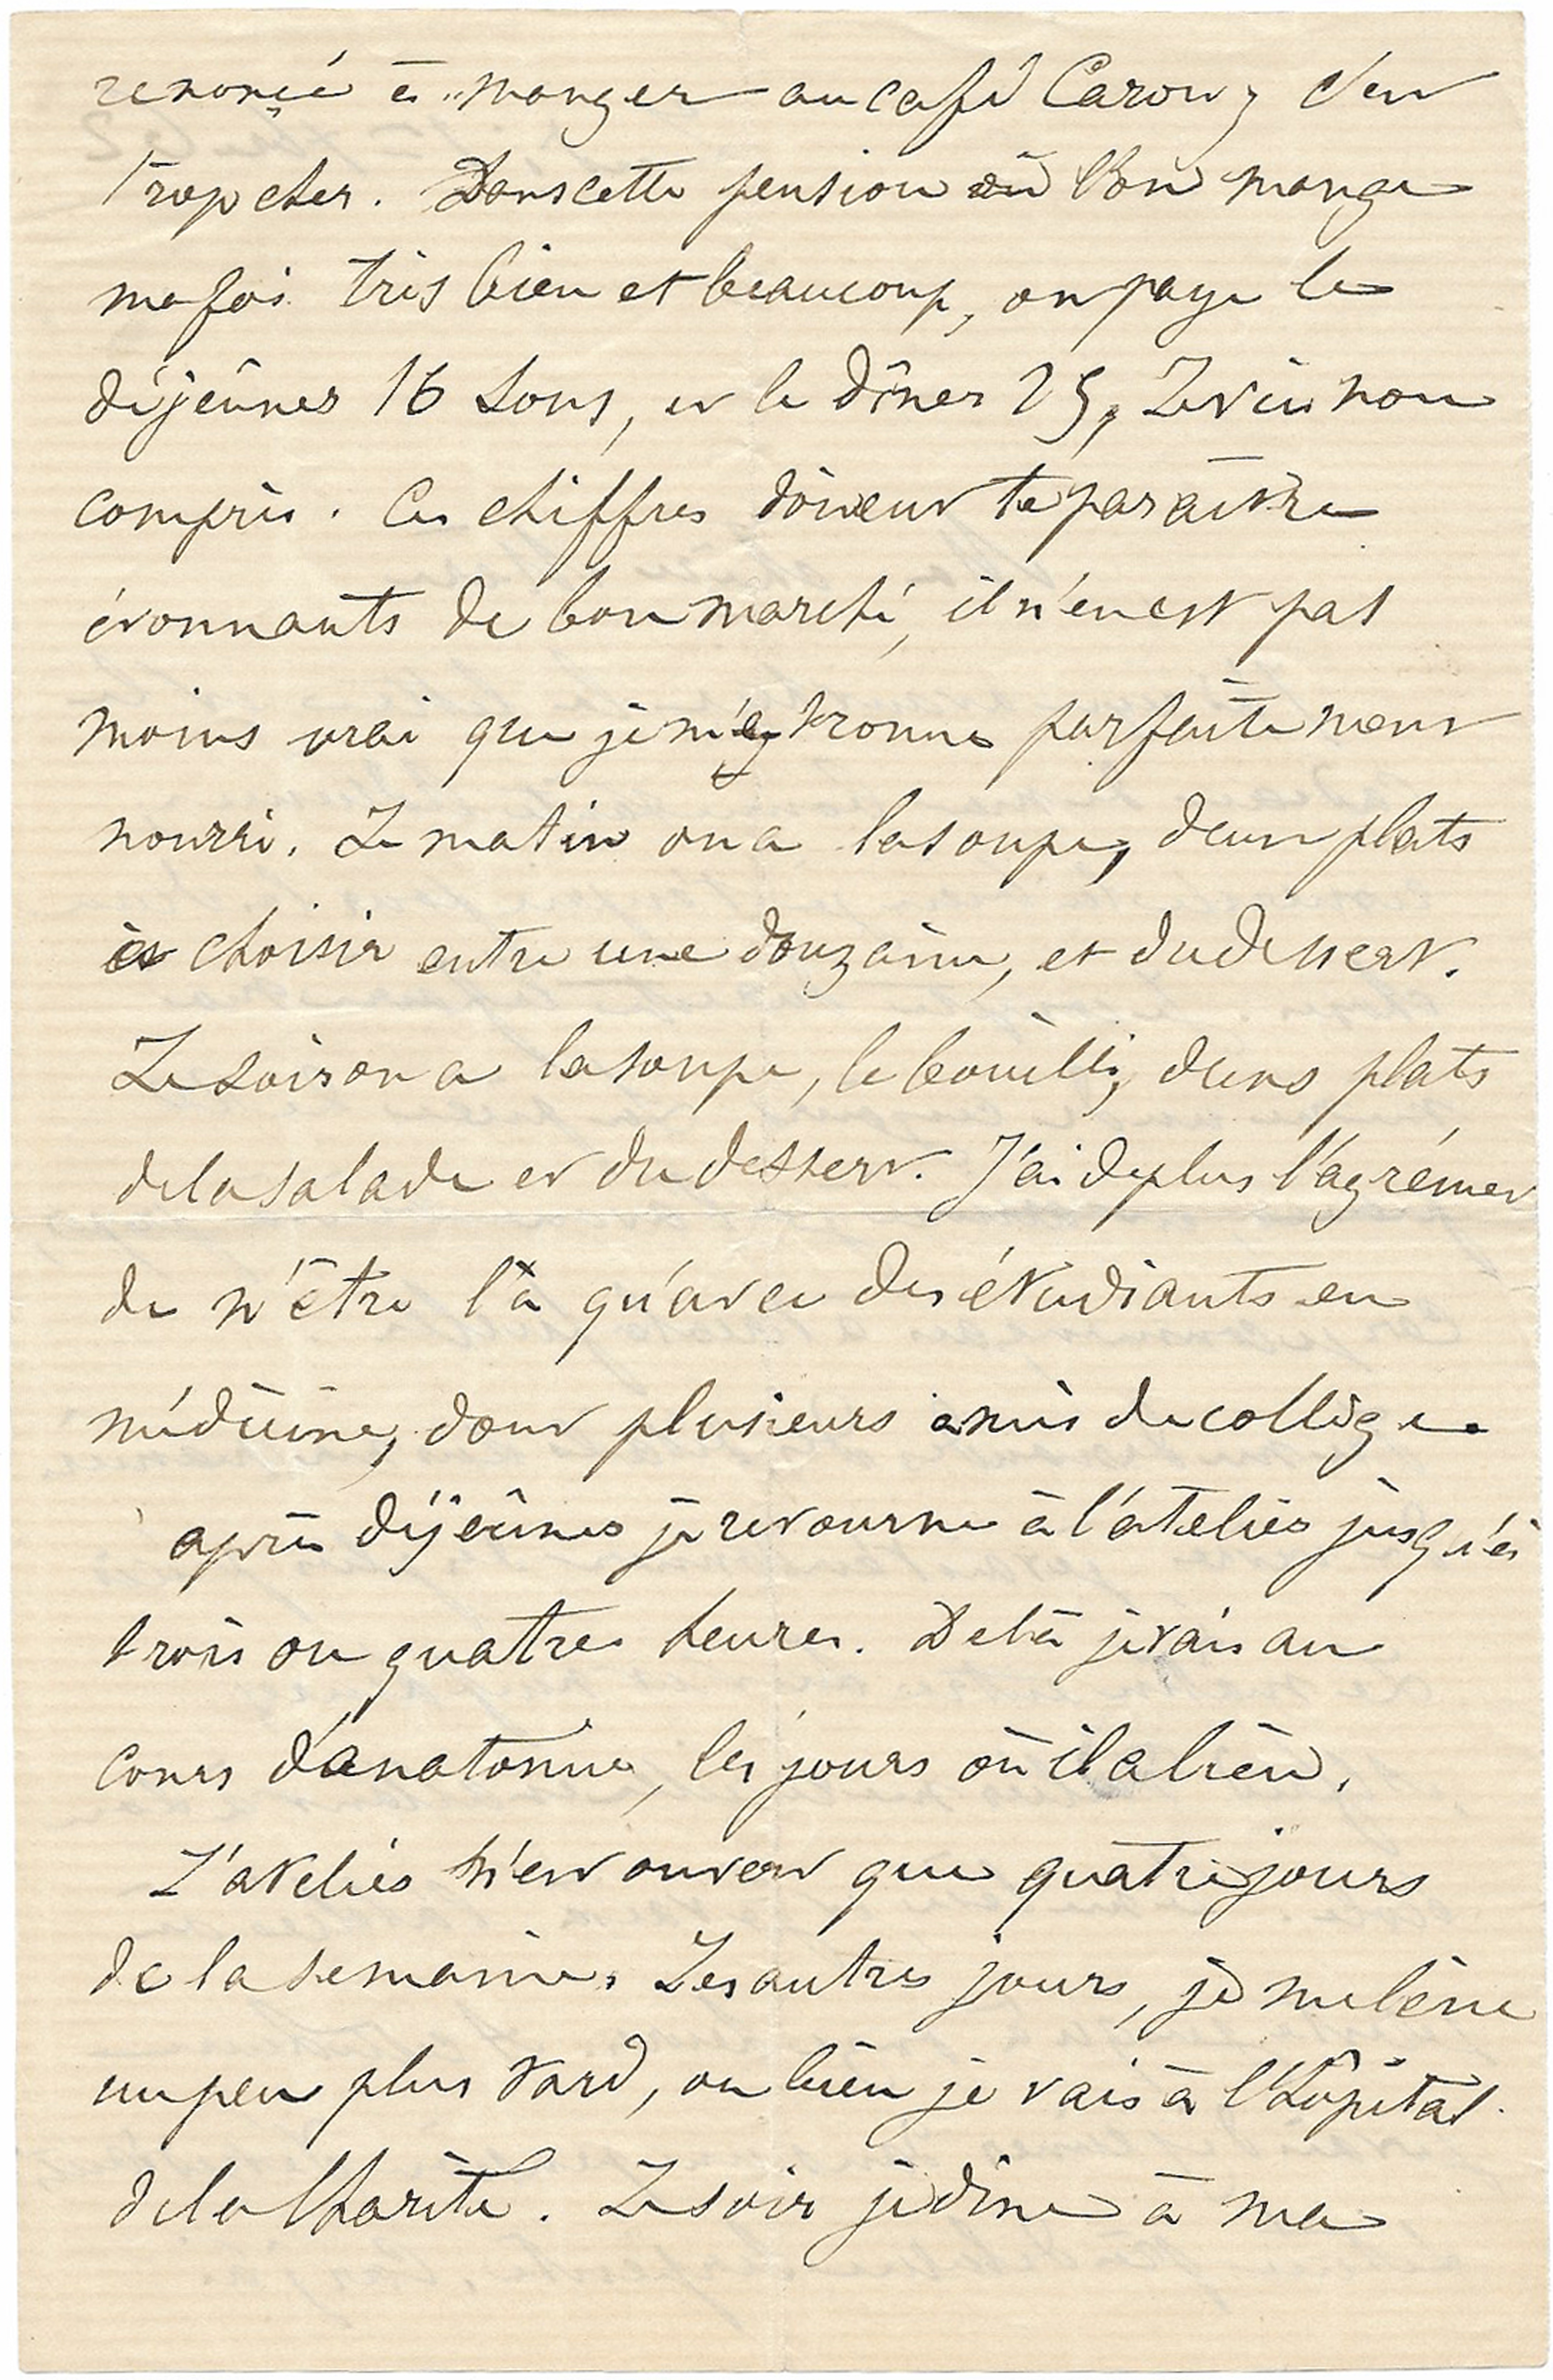 renoncé à manger au café Caron, c'est
trop cher. Dans cette pension où l'on mange
ma foi très bien et beaucoup, on paye le
déjeûner 16 sous, et le dîner 25, Le vin non
compris. Ces chiffres doivent te paraître
étonnants de bon marché, il n'en est pas
moins vrai que je m'y trouve parfaitement
nourri. Le matin on a la soupe, deux plats
à choisir entre une douzaine, et du dessert.
Le soir on a la soupe, le bouilli, deux plats
de la salade et du dessert. J'ai de plus l'agrément
de n'être là qu'avec des étudiants en
médecine, dont plusieurs amis de collège.
après déjeûner je retourne à l'atelier jusqu'à
trois ou quatre heures. De là je vais au
cours d'anatomie, les jours où il a lieu.
L'atelier n'est ouvert que quatre jours
de la semaine. Les autres jours, je me lève
un peu plus tard, ou bien je vais à l'hôpital
de la Charité. Le soir je dîne à ma